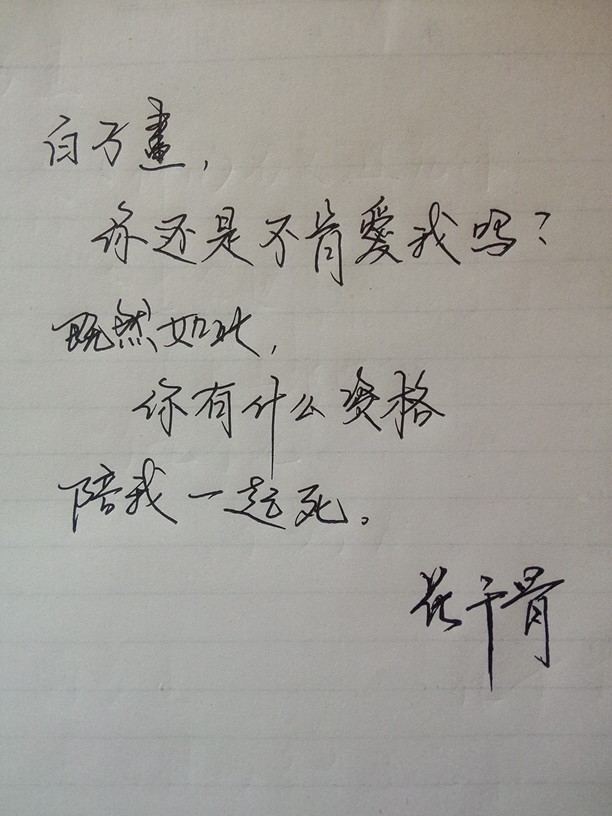 白子畫，
你还是不肯愛我吗？
既然如此，
你有什么资格
陪我一起死。
花千骨